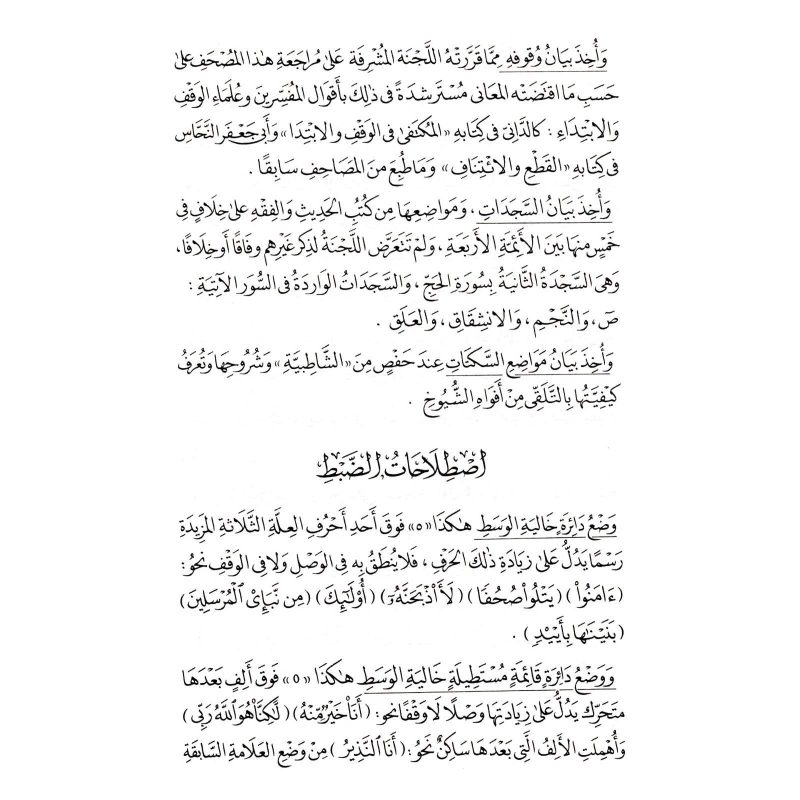 وَأُخِذَ بَيَانُ وُقُوفِهِ مِمَّا قَرَّرَتْهُ اللَّجْنَةُ المُشْرِفَة عَلَى مُرَاجَعَةِ هٰذَا المُصْحَفِ عَلَى
حَسَبِ مَا اقْتَضَتْه المَعَانِى مُسْتَرشِدَةً فى ذٰلِكَ بِأَقْوَالِ المُفَسِّرِينَ وَعُلَمَاءِ الوَقْفِ
وَالابْتِدَاءِ : كالدَّانِىّ فى كِتَابِهِ «المُكْتَفَى فى الوَقْفِ وَالابْتِدَا» وَأَبِى جَعْفَرٍ النَّحَّاسِ
فى كِتَابِهِ «القَطْعِ وَالائْتِنَافِ» وَمَا طُبِعَ مِنَ المَصَاحِفِ سَابِقًا .
وَأُخِذَ بَيَانُ السَّجَدَاتِ ، وَمَوَاضِعِهَا مِن كُتُبِ الحَدِيثِ وَالفِقْهِ عَلَى خِلَافٍ فِى
خَمْسٍ مِنهَا بَيْنَ الأَئِمَّةِ الأَرْبَعَةِ ، وَلَمْ تَتَعَرَّضِ اللَّجْنَةُ لِذِكرِ غَيْرِهِمْ وِفَاقًا أَوخِلَافًا ،
وَهِىَ السَّجْدَةُ الثَّانِيَةُ بِسُورَةِ الحَجِّ ، وَالسَّجَدَاتُ الوَارِدَةُ فى السُّوَرِ الآتِيَةِ :
صٓ ، وَالنَّجْمِ ، وَالانشِقَاقِ ، وَالعَلَقِ .
وَأُخِذَ بَيَانُ مَوَاضِعِ السَّكْتَاتِ عِندَ حَفْصٍ مِنَ «الشَّاطِبِيَّةِ» وَشُرُوحِهَا وَتُعرَفُ
كَيْفِيَّتُهَا بِالتَّلَقِّى مِنْ أَفْوَاهِ الشُّيُوخِ .
اصْطِلَاحَاتُ الضَّبْطِ
وَضْعُ دَائِرَةٍ خَالِيَةِ الوَسَطِ هٰكَذَا «ه» فَوقَ أَحَدِ أَحْرُفِ العِلَّةِ الثَّلَاثَةِ المَزِيدَةِ
رَسْمًا يَدُلُّ عَلَى زِيَادَةِ ذٰلِكَ الحَرْفِ ، فَلَا يُنطَقُ بِهِ فى الوَصْلِ وَلَا فى الوَقْفِ نحو:
(ءَامَنُواْ) (يَتْلُواْ صُحُفًا) (لَأَاْذْبَحَنَّهُۥٓ) (أُوْلَٰٓئِكَ) (مِن نَّبَإِيْ ٱلْمُرْسَلِينَ)
(بَنَيْنَٰهَا بِأَيْيْدٍ) .
وَوَضْعُ دَائِرَةٍ قَائِمَةٍ مُسْتَطِيلَةٍ خَالِيَةِ الوَسَطِ هٰكَذَا «٥» فَوْقَ أَلِفٍ بَعْدَهَا
مُتَحَرِّكٌ يَدُلُّ عَلَى زِيَادَتِهَا وَصْلًا لَا وَقْفًا نحو: (أَنَا۠ خَيْرٌ مِّنْهُ) (لَّٰكِنَّا۠ هُوَ ٱللَّهُ رَبِّى)
وَأُهْمِلَتِ الأَلِفُ الَّتِى بَعْدَهَا سَاكِنٌ نَحْوُ: (أَنَا ٱلنَّذِيرُ) مِنْ وَضْعِ العَلَامَةِ السَّابِقَةِ